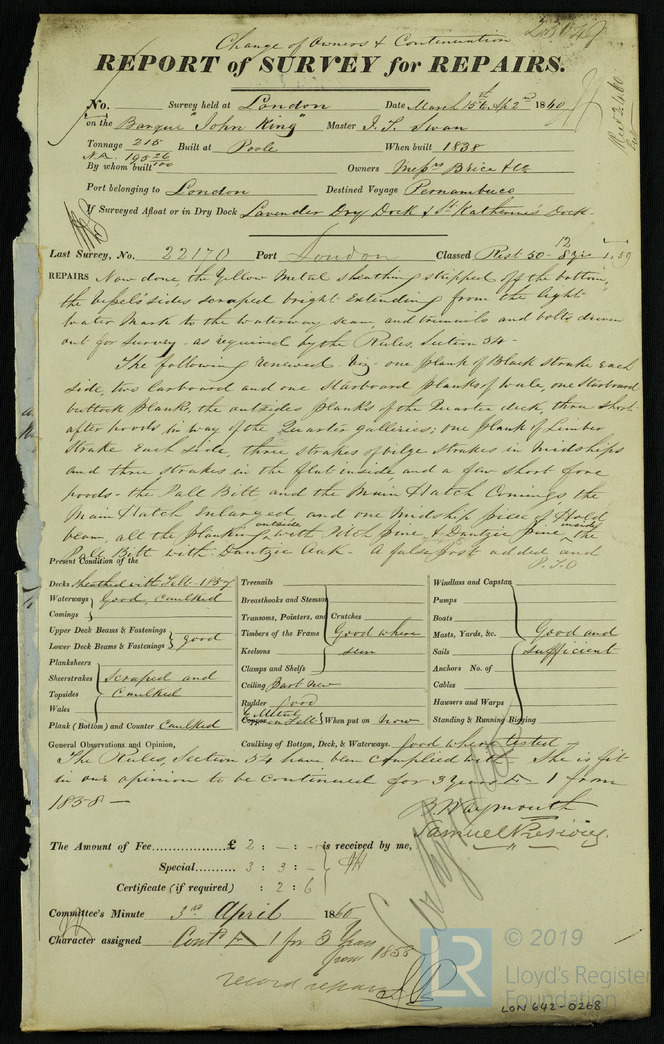 Change of Owners & Continuation
REPORT of SURVEY for REPAIRS.
No. Survey held at London Date March 15th Ap 2nd 1860
on the Barque "John King" Master J. T. Swan
Tonnage 215 Built at Poole When built 1838
By whom built Owners Messrs Brice & Co
Port belonging to London Destined Voyage Pernambuco
If Surveyed Afloat or in Dry Dock Lavender Dry Dock & St Katherine's Dock.
Last Survey, No. 22170 Port London Classed
REPAIRS Now done, the Yellow Metal sheathing stripped off the bottom,
the vessels sides scraped bright Extending from the light
Water Mark to the waterway seam, and treenails and bolts driven
out for Survey - as required by the Rules, Section 54 -
The following renewed Viz - one plank of Black strake Each
Side, two larboard and one Starboard planks of wale, one Starboard
buttock planks, the outsides planks of the Quarter deck, three short
after hoods in way of the Quarter galleries; one plank of Limber
Strake Each Side, three strakes of bilge strakes in Midships
and three strakes in the flat inside, and a few short fore
hoods - the Pall Bitt and the Main Hatch Comings the
Main Hatch Enlarged, and one Midship piece of Hold
beam, all the planking outside with Pitch pine & Dantzic pine inside the
Pall Bitt with Dantzic Oak - A false post added and
P.T.O
Present Condition of the
Decks sheathed with felt - 1857
Waterways
Comings
Good, caulked
Upper Deck Beams & Fastenings
Lower Deck Beams & Fastenings
good
Planksheers
Sheerstrakes
Topsides
Wales
Scraped and
Caulked
Plank (Bottom) and Counter Caulked
Treenails
Breasthooks and Stemson
Transoms, Pointers, and Crutches
Timbers of the Frame
Keelsons
Good where
seen
Clamps and Shelfs
Ceiling Part New
Rudder good
Y. Metal
Copper on Felt When put on Now
Windlass and Capstan
Pumps
Boats
Masts, Yards, &c.
Sails
Anchors No. of
Cables
Hawsers and Warps
Standing & Running Rigging
Good and
Sufficient
General Observations and Opinion, Caulking of Bottom, Deck, & Waterways. Good where tested
The Rules, Section 54 have been complied with. She is fit
in our opinion to be continued for 3 years 1 from
1858 -
B. Waymouth
Samuel
The Amount of Fee £ 2 : - : - is received by me,
Special 3 : 3 : -
Certificate (if required) : 2 : 6
Committee's Minute 3rd April 1860
Character assigned Contd 1 for 3 Years
from 1858
record repairs
LR
© 2019
Lloyd's Register
Foundation
LON 642-0268